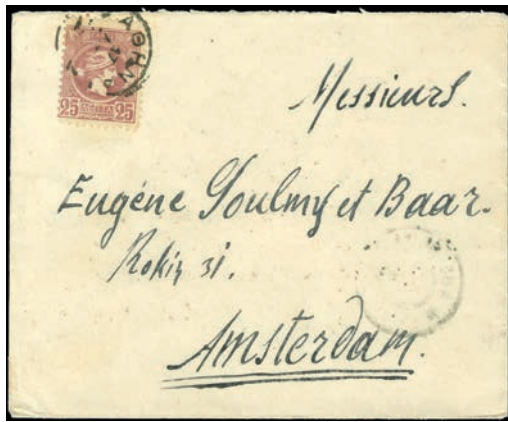 ΑΘΗΝ
25 25
Messieurs.
Eugéne Goulmy et Baar.
Rokin 31.
Amsterdam.